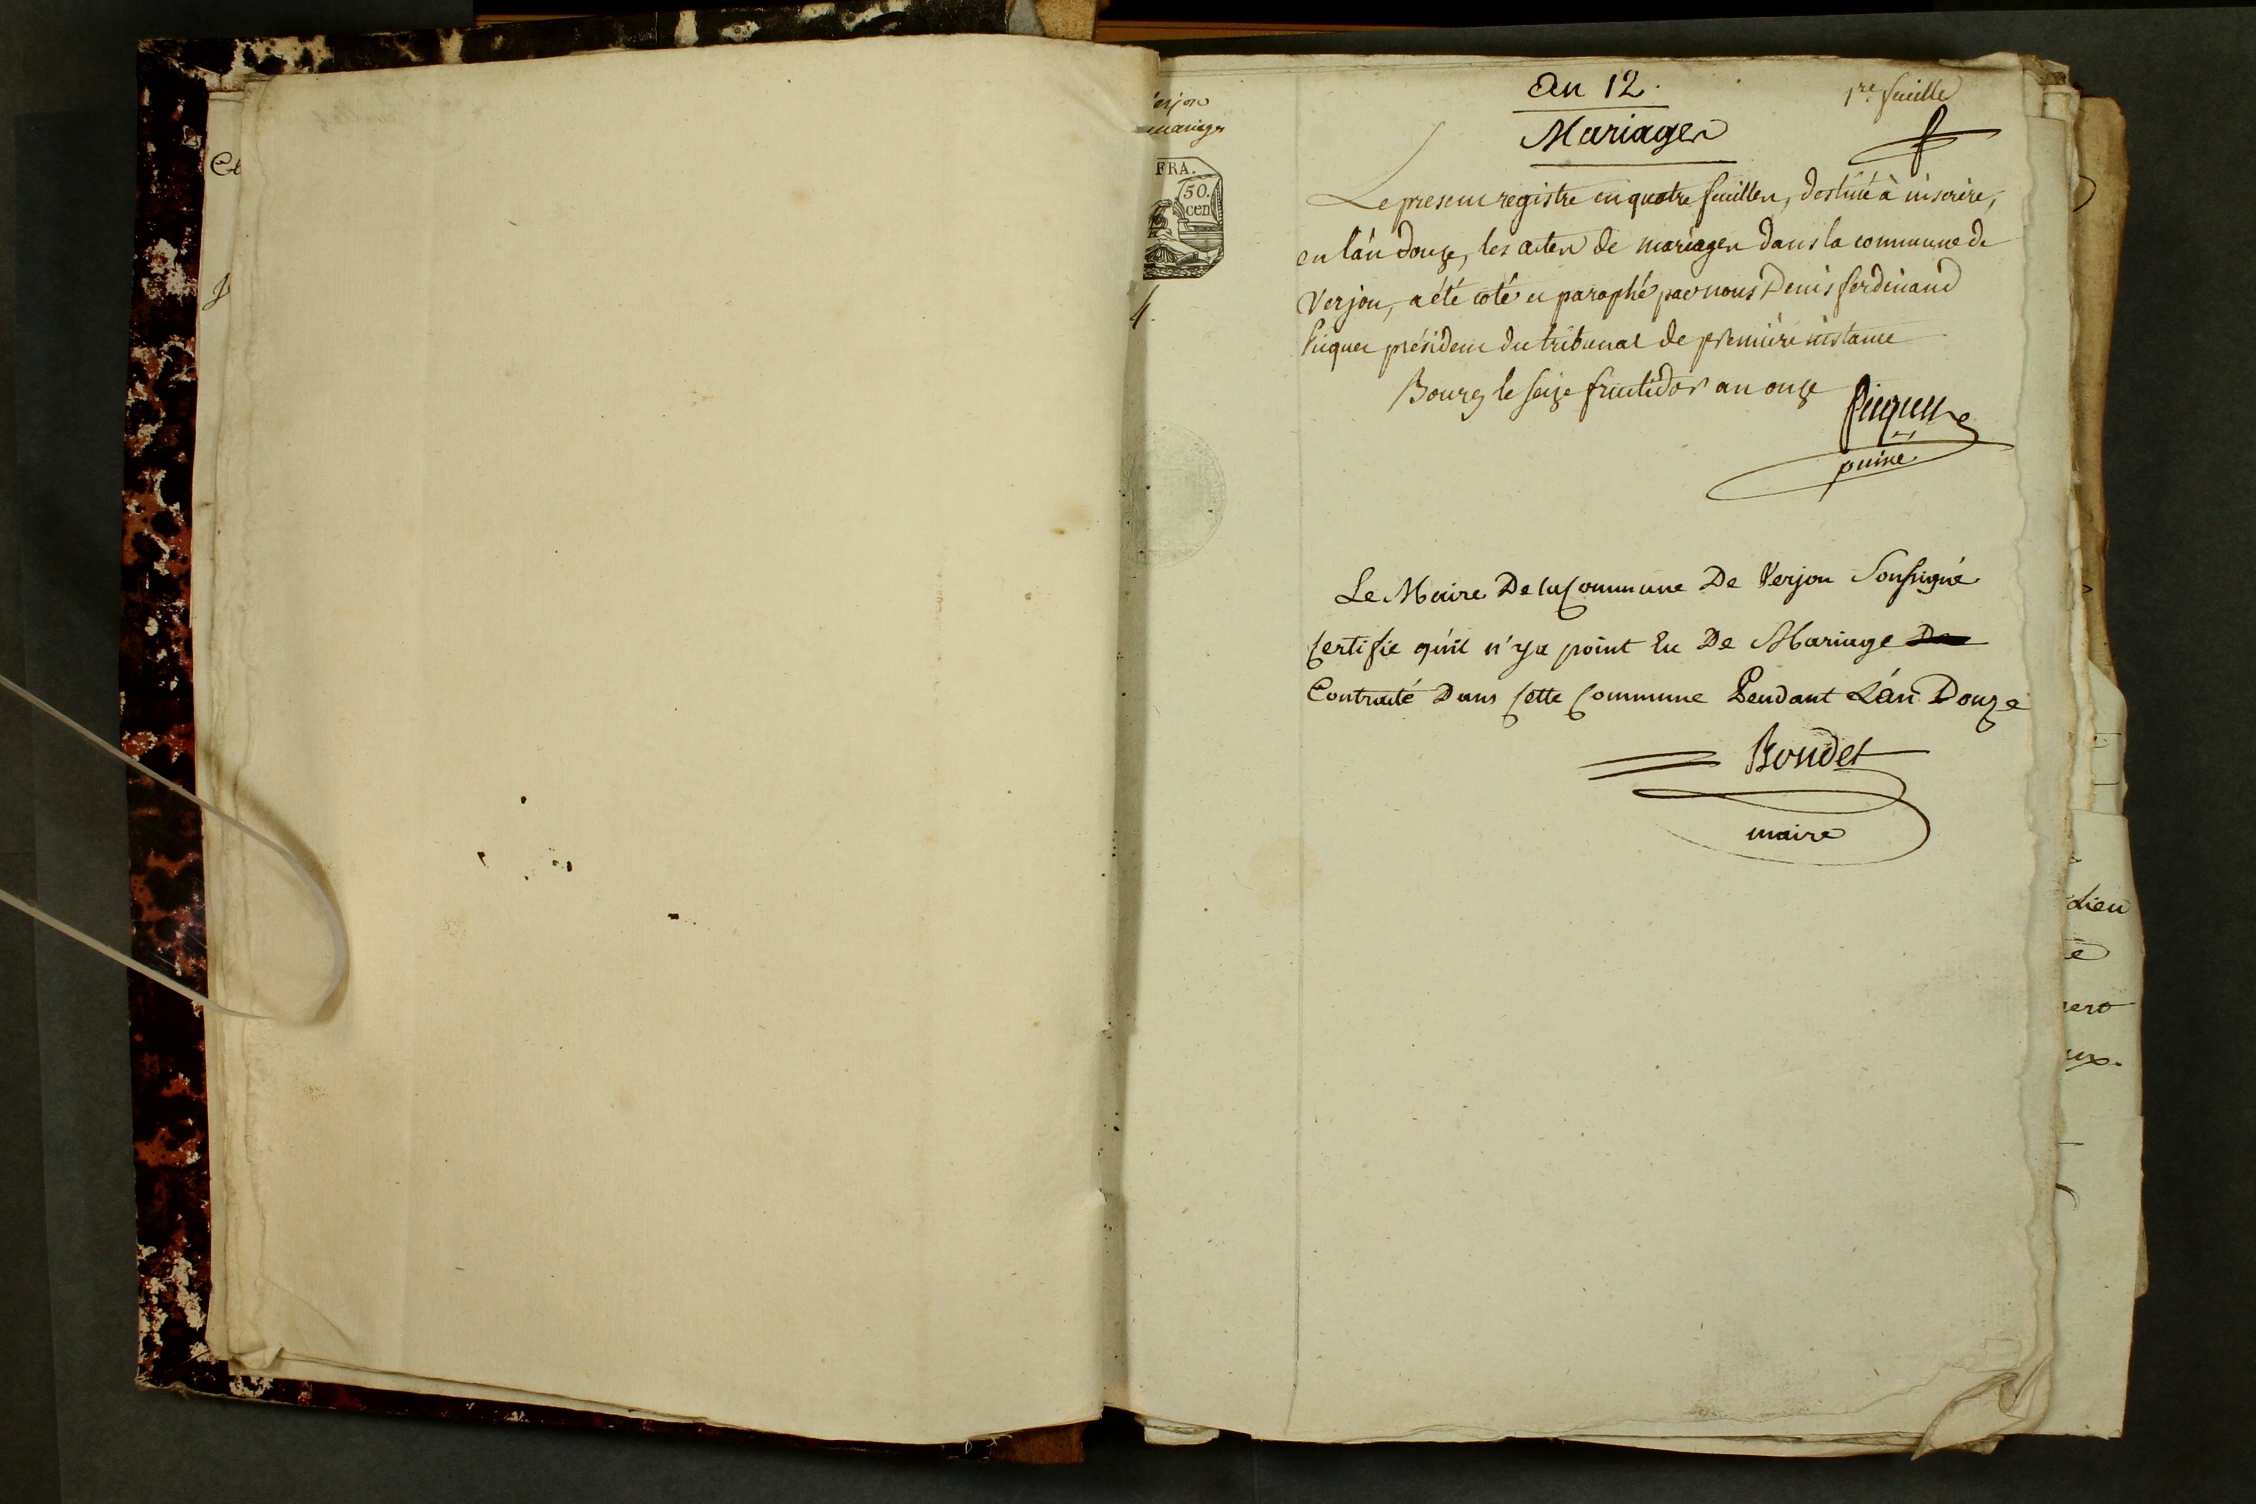 An 12.
1re. feuille
Mariages
Verjon
mariages
FRA.
50.
cen
4.
Le present registre en quatre feuilles, destiné à inscrire,
en l'an douze, les actes de mariages dans la commune de
Verjon, a été coté et paraphé par nous Denis ferdinand
Picquet président du tribunal de première instance
Bourg le seize fructidor an onze
Picquet
puiné
Le Maire De la Commune De Verjon Soussigné
Certifie qu'il n'y a point Eu De Mariage De
Contracté Dans Cette Commune Pendant L'an Douze
Bondet
maire
dieu